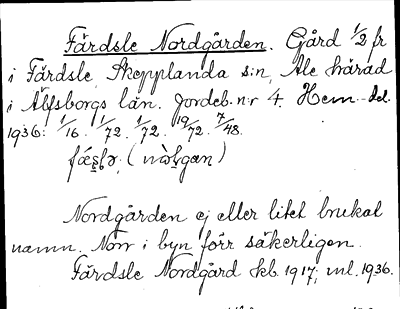 Färdsle Nordgården. Gård 1/2 fr
i Färdsle, Skepplanda s:n, Ale härad
i Älfsborgs län. Jordeb. n:r 4. Hem.del.
1936: 1/16. 1/72. 1/72. 19/72. 7/48.
Nordgården ej eller litet brukat
namn. Norr i byn förr säkerligen.
Färdsle Nordgård kb. 1917; ml. 1936.